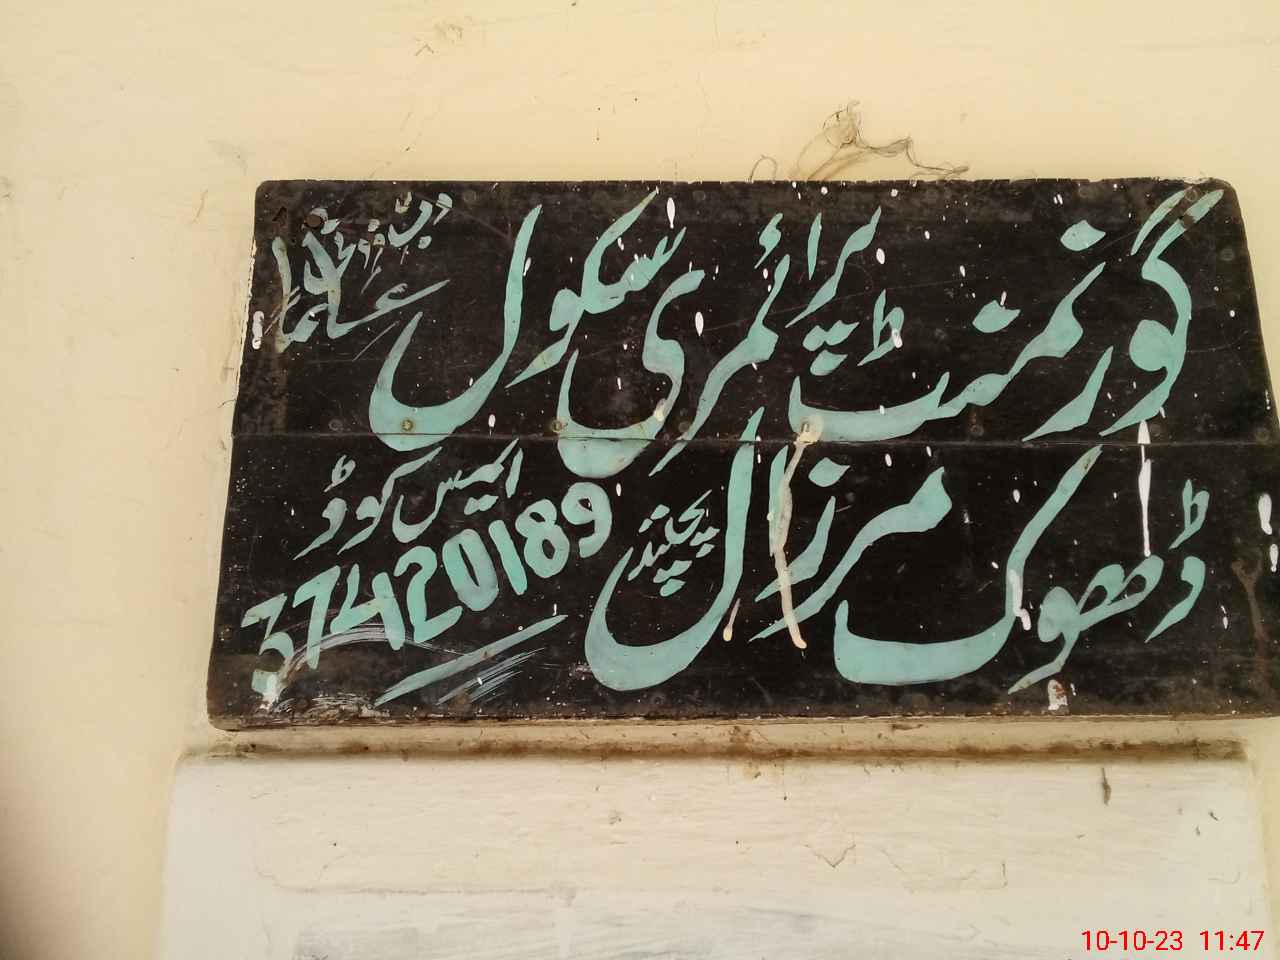 گورنمنٹ پرائمری سکول
ڈھوک مرزال پچنند
ایمس کوڈ
37420189
10-10-23 11:47